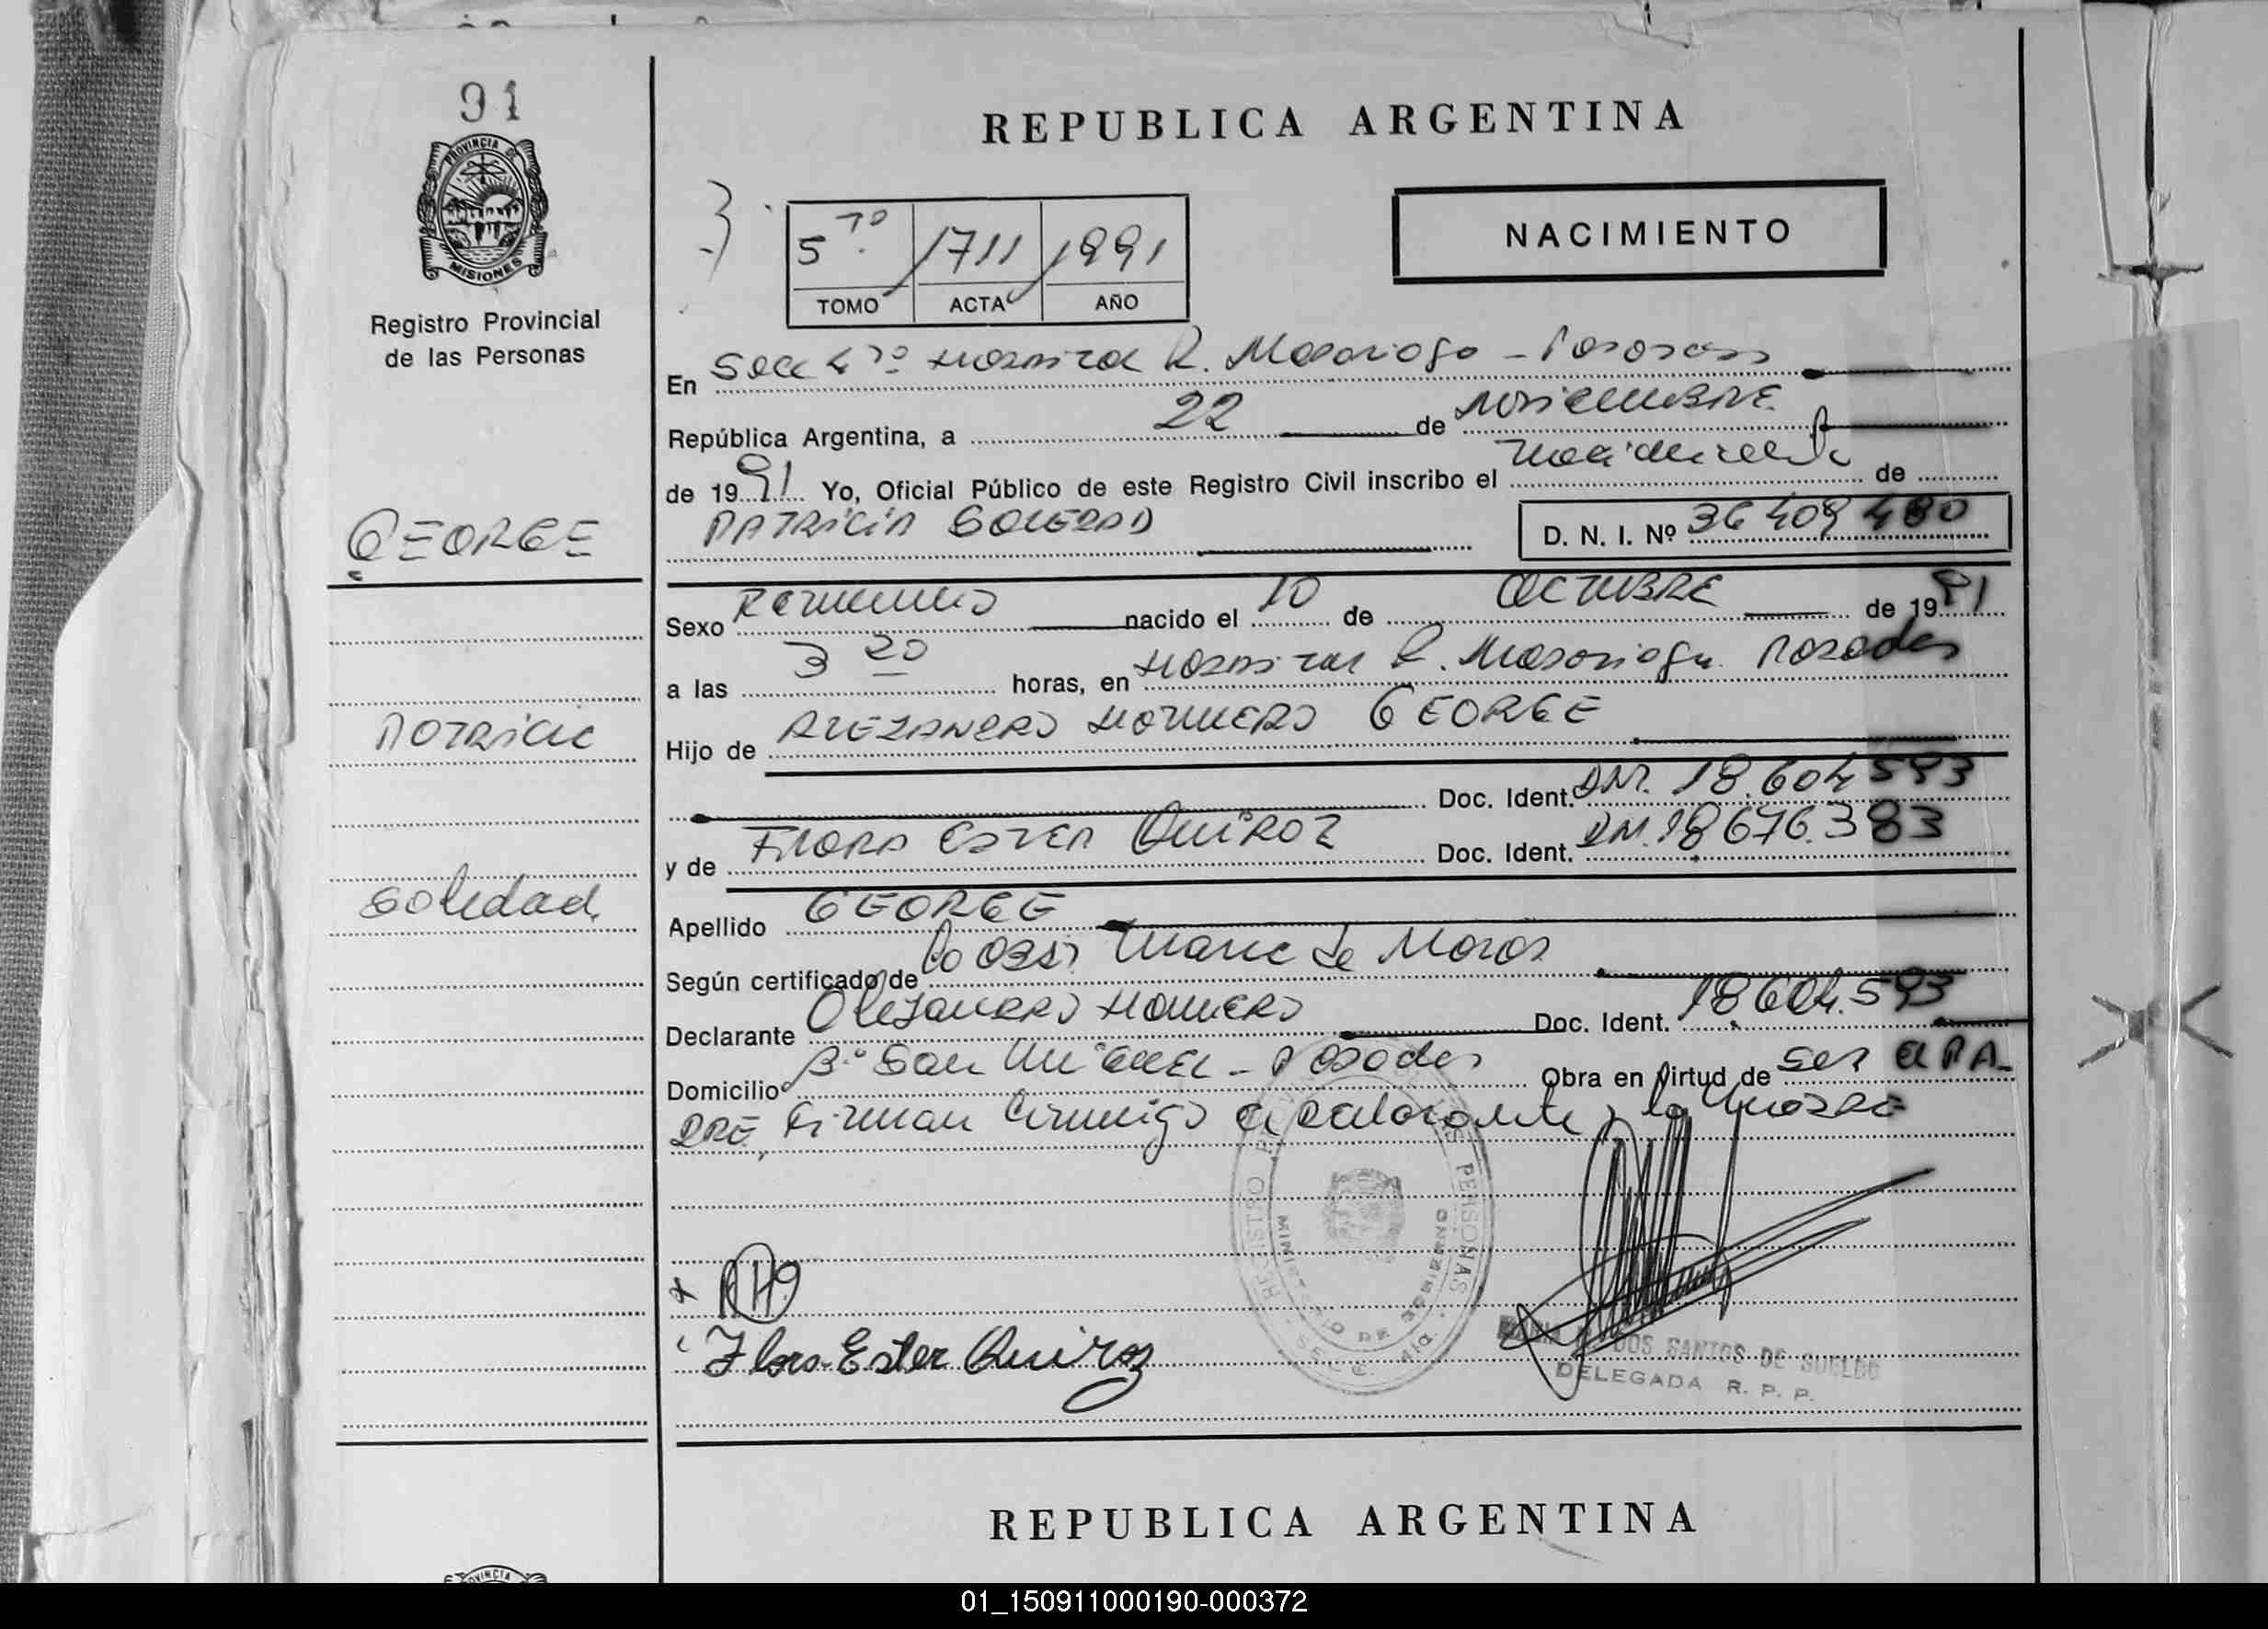 91
PROVINCIA DE
MISIONES
Registro Provincial
de las Personas
GEORGE
Patricia
Soledad
REPUBLICA ARGENTINA
NACIMIENTO
5to 1711 1991
TOMO ACTA AÑO
En Secc 4to Hospital R. Madariaga - Posadas
República Argentina, a 22 de Noviembre
de 1991 Yo, Oficial Público de este Registro Civil inscribo el Nacimiento de
PATRICIA SOLEDAD
D. N. I. Nº 36 409 480
Sexo Femenino nacido el 10 de OCTUBRE de 1991
a las 3 20 horas, en Hospital R. Madariaga Posadas
Hijo de ALEJANDRO HOMERO GEORGE
Doc. Ident. DNI. 18.604 593
y de FLORA ESTER QUIROZ Doc. Ident. DNI. 18676.383
Apellido GEORGE
Según certificado de La Obst. Maria de
Declarante Alejandro Homero Doc. Ident. 18604.593
Domicilio Bº San Miguel - Posadas Obra en virtud de ser el PA-
DRE, Firman conmigo el declarante y la Madre
Flora Ester Quiroz
REGISTRO PERSONAS
MINISTERIO DE GOBIERNO
DOS SANTOS DE SUELDO
DELEGADA R. P. P.
REPUBLICA ARGENTINA
01_150911000190-000372